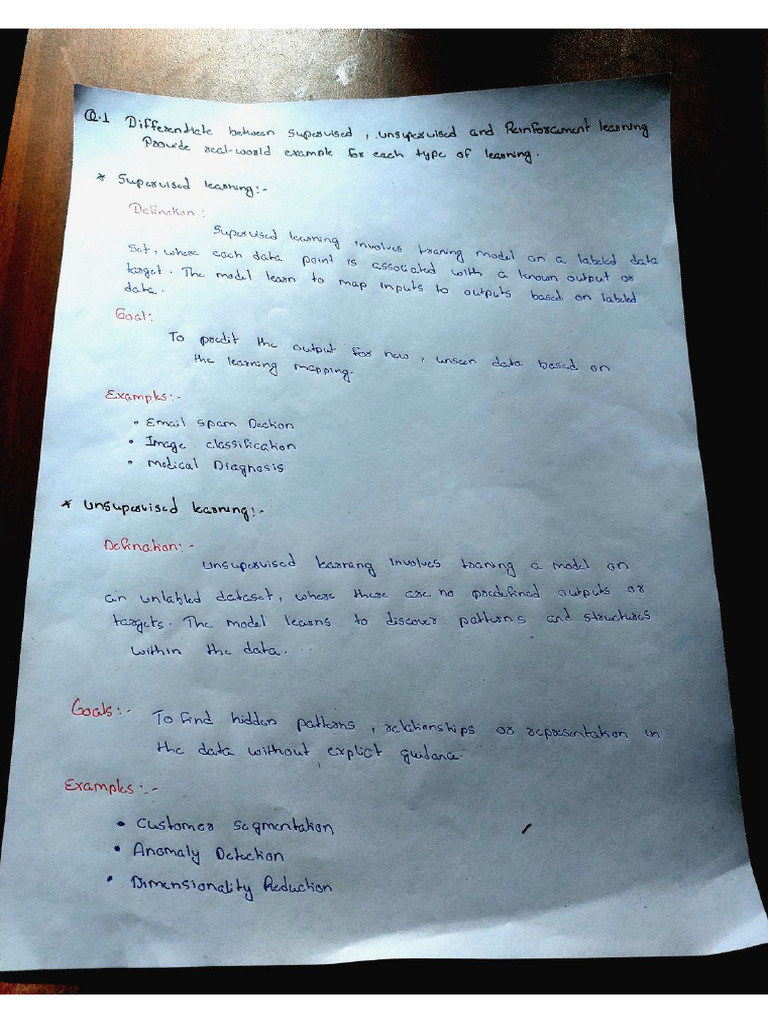 Q.1 Differentiate between supervised, unsupervised and Reinforcement learning
Provide real-world example for each type of learning.
* Supervised learning:-
Defination:
Supervised learning involves traning model on a labeled data
set, where each data point is associated with a known output or
target. The model learn to map inputs to outputs based on labeled
data.
Goal:
To predit the output for new, unseen data based on
the learning mapping.
Examples:-
• Email spam Dection
• Image classification
• Medical Diagnosis
* Unsupervised learning:-
Defination:-
Unsupervised learning involves traning a model on
an unlabled dataset, where there are no predefined outputs or
targets. The model learns to discover patterns and structures
within the data.
Goals:- To find hidden patterns, relationships or representation in
the data without explict guidance.
Examples:-
• Customer Segmentation
• Anomaly Detection
• Dimensionality Reduction